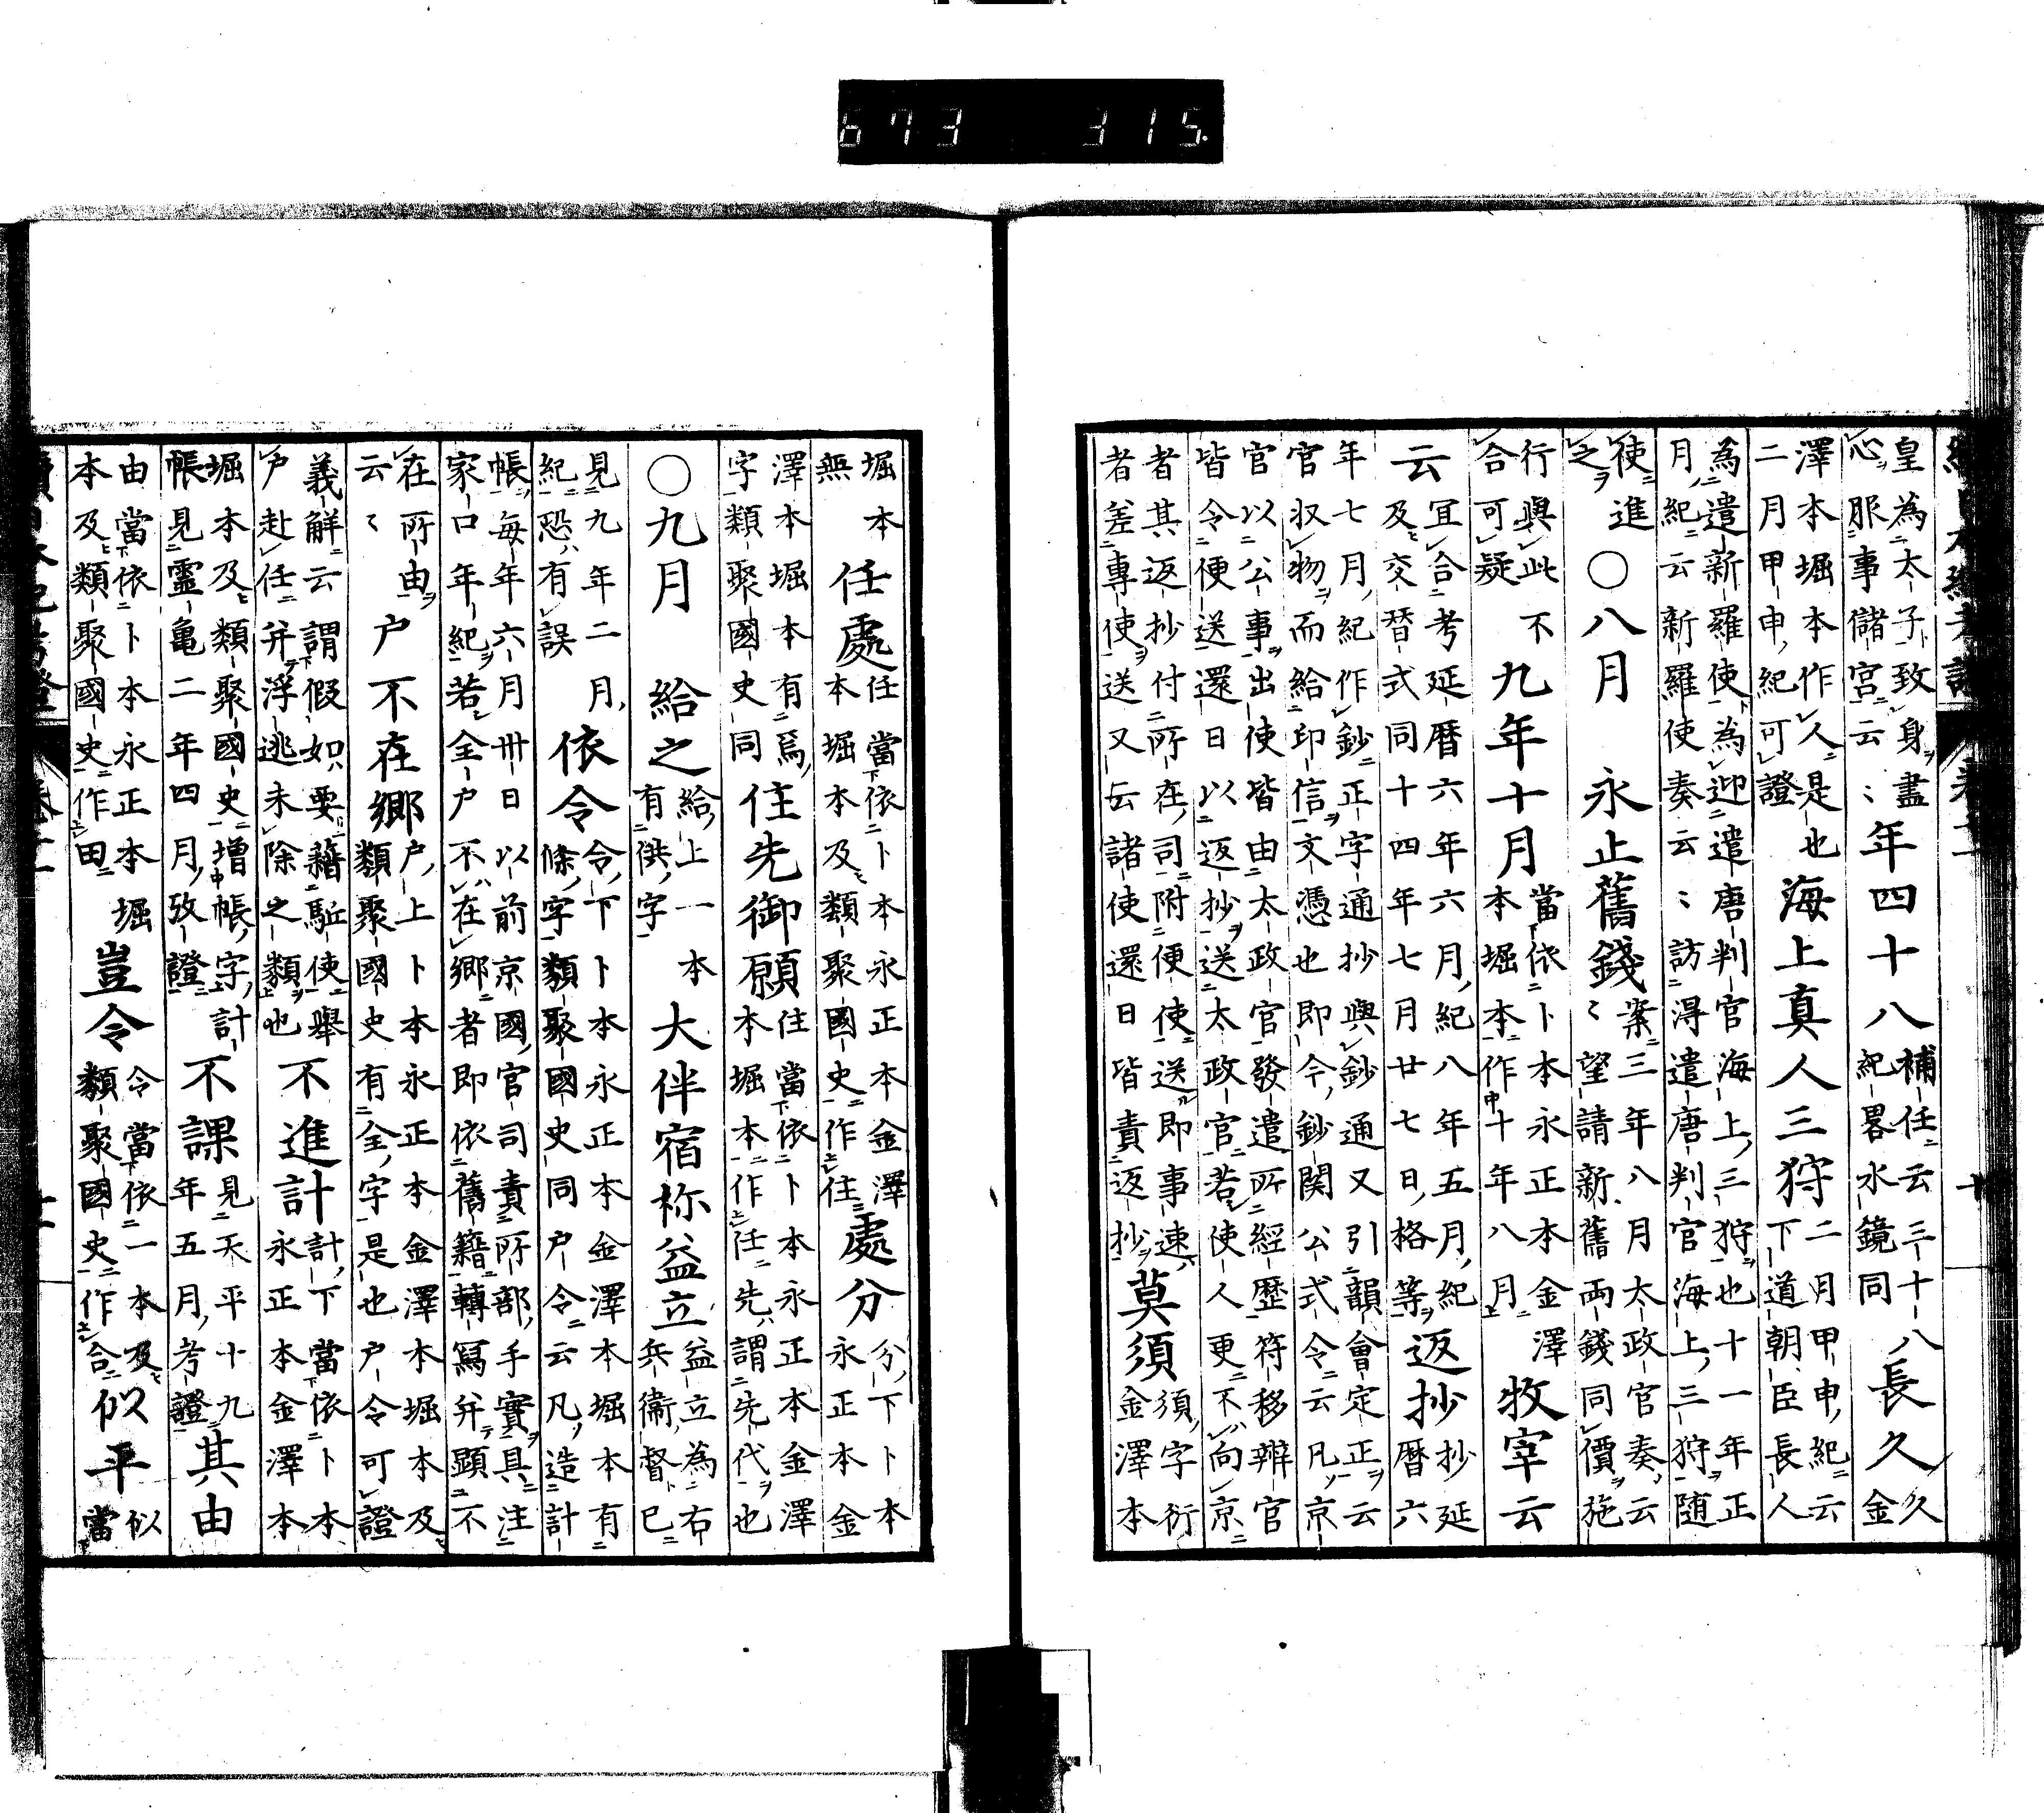 673 315.
皇為太子致身盡
心服事儲宮云〻年四十八補任云三十八
紀畧水鏡同長久久
金
澤本堀本作人是也
二月甲申紀可證海上真人三狩二月甲申紀云
下道朝臣長人
為遣新羅使為迎遣唐判官海上三狩也十一年正
月紀云新羅使奏云〻訪得遣唐判官海上三狩随
使進
之○八月 永止舊錢案三年八月太政官奏云
〻望請新舊兩錢同價施
行與此不
合可疑九年十月當依卜本永正本金澤
本堀本作十年八月牧宰云
云冝合考延暦六年六月紀八年五月紀
及交替式同十四年七月廿七日格等返抄抄延
暦六
年七月紀作鈔正字通抄與鈔通又引韻會定正云
官収物而給印信文憑也即今鈔関公式令云凡京
官以公事出使皆由太政官發遣所經歴符移辨官
皆令便送還日以返抄送太政官若使人更不向京
者其返抄付所在司附便使送即事速
者差專使送又云諸使還日皆責返抄莫須須字衍
金澤本
堀本
無任處任當依卜本永正本金澤
本堀本及類聚國史作住處分分下卜本
永正本金
澤本堀本有焉
字類聚國史同住先御願住當依卜本永正本金澤
本堀本作任先謂先代也
○九月 給之給上一本
有供字大伴宿祢益立益立為右
兵衛督已
見九年二月
紀恐有誤依令令下卜本永正本金澤本堀本有
條字類聚國史同戸令云凡造計
帳毎年六月卅日以前京國官司責所部手實具注
家口年紀若全戸不在郷者即依舊籍轉寫并顯不
在所由
云〻戸不在郷戸上卜本永正本金澤本堀本及
類聚國史有全字是也戸令可證
義解云謂假如要籍駈使舉
戸赴任并浮逃未除之類也不進計計下當依卜本
永正本金澤本
堀本及類聚國史増帳字計
帳見靈亀二年四月攷證不課見天平十九
年五月考證其由
由當依卜本永正本堀
本及類聚國史作田豈令令當依一本及
類聚國史作合似平似
當